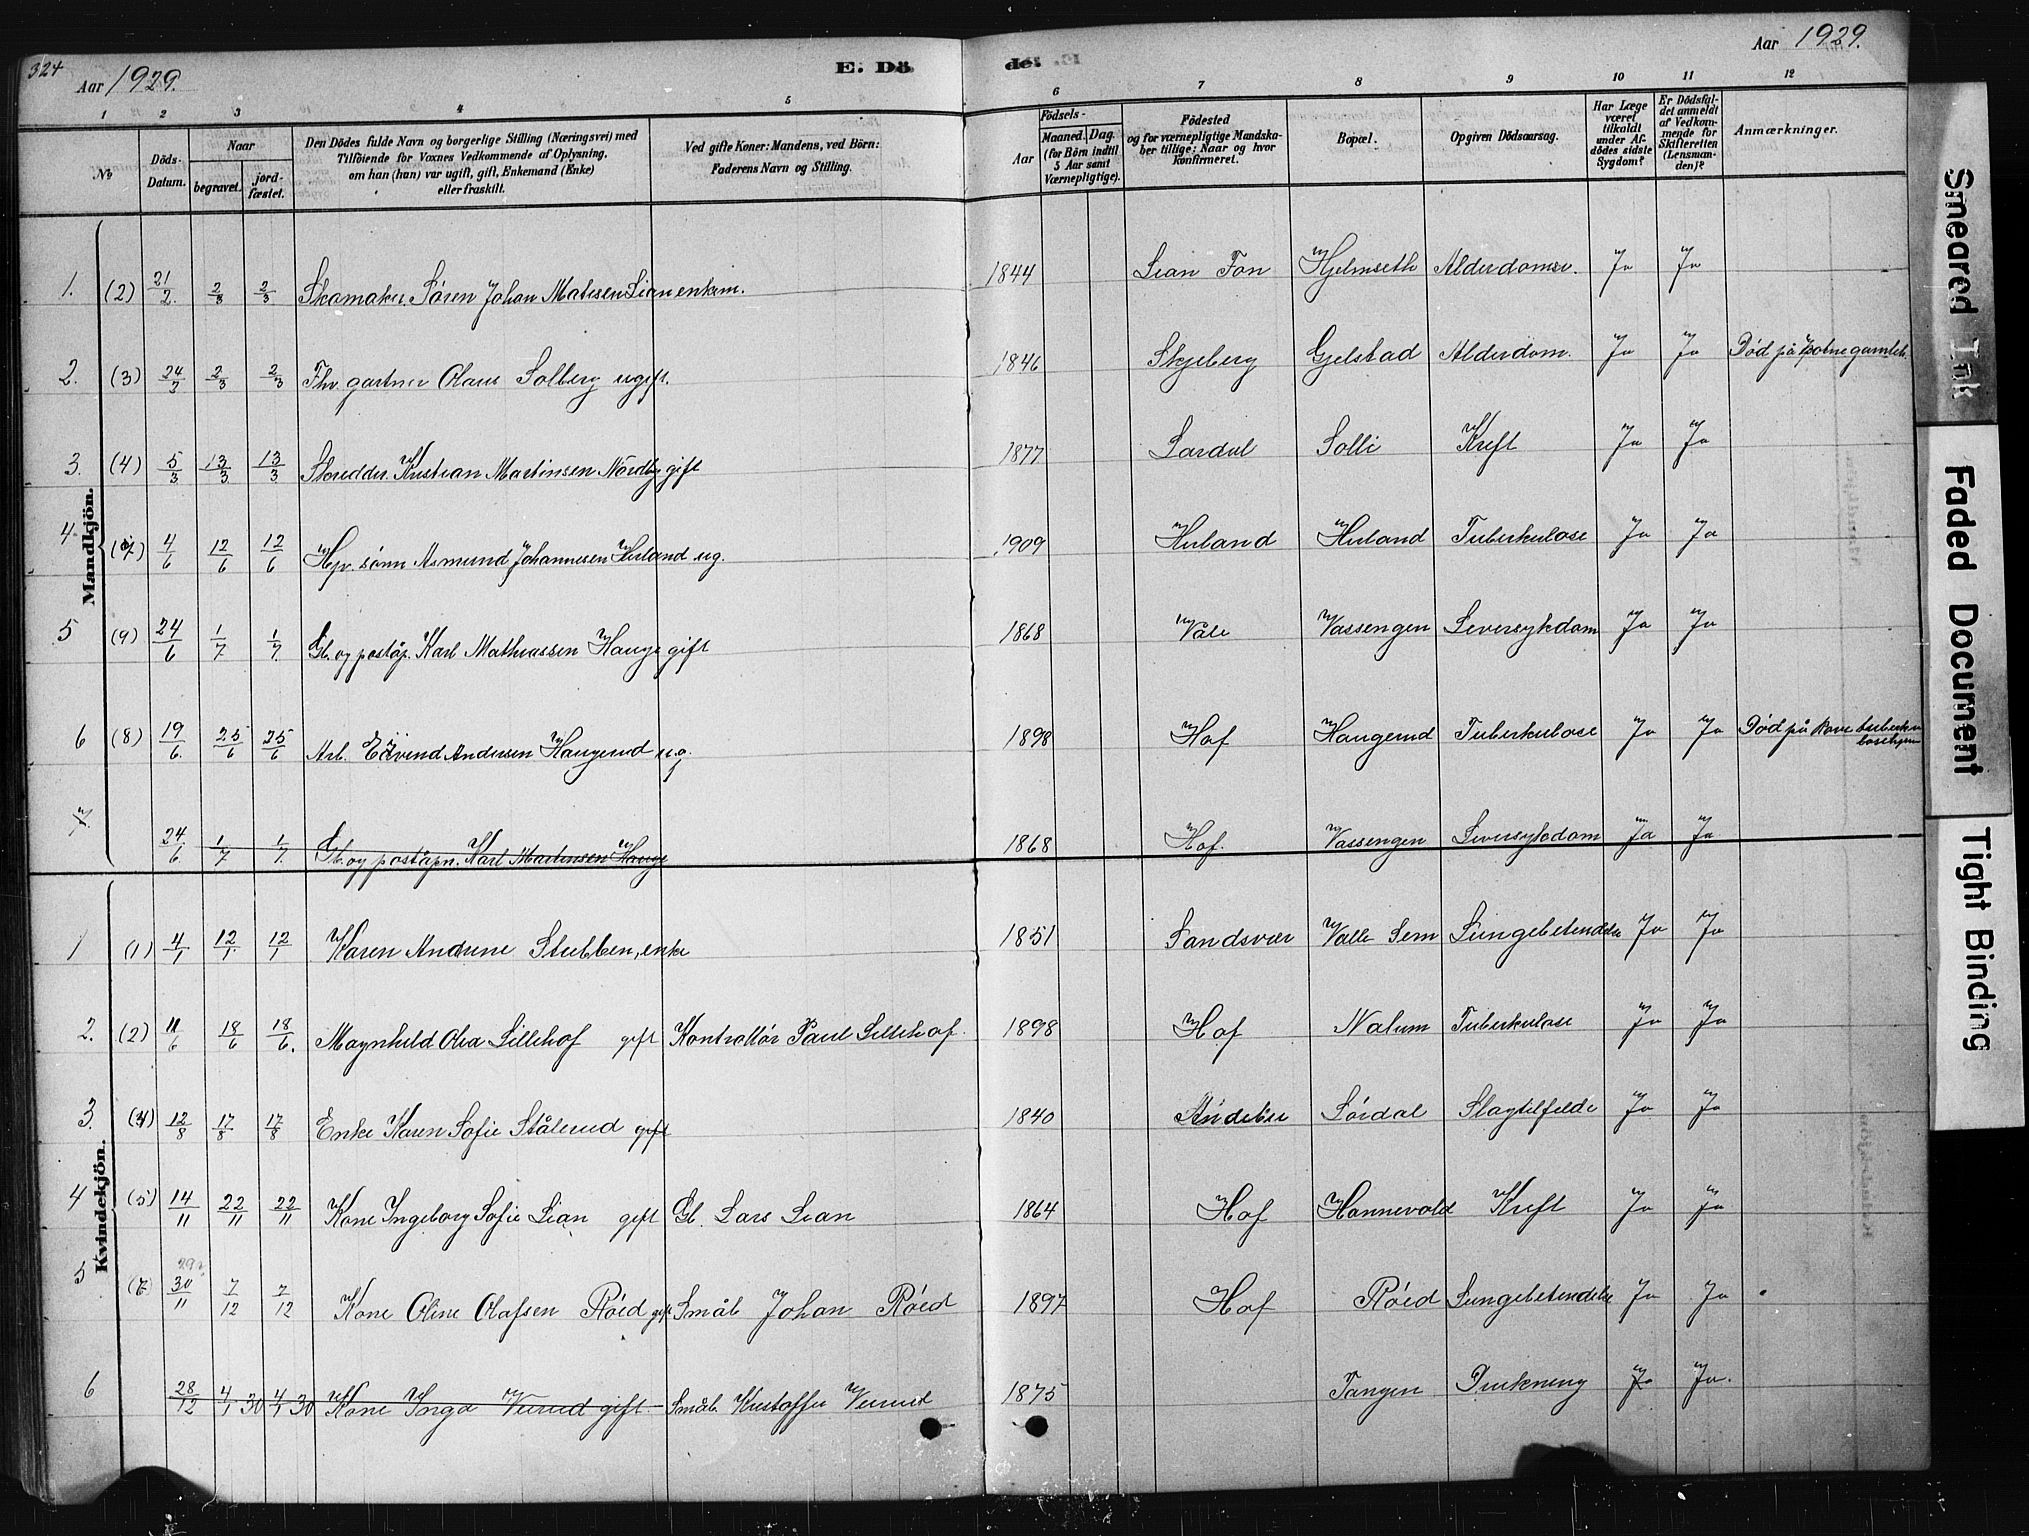 324
Aar 1929.
E. Dö
de. E
Aar 1929.
1 2 3 4 5 6 7 8 9 10 11 12
No
Döds-Datum.
Naar
begravet.
jord-fæstet.
Den Dödes fulde Navn og borgerlige Stilling (Næringsvei) med
Tilföiende for Voxnes Vedkommende af Oplysning,
om han (han) var ugift, gift, Enkemand (Enke)
eller fraskilt.
Ved gifte Koner: Mandens, ved Börn:
Faderens Navn og Stilling.
Födsels-
Aar
Maaned. Dag.
(for Börn indtil
5 Aar samt
Værnepligtige).
Födested
og for værnepligtige Mandska-
ber tillige; Naar og hvor
konfirmeret.
Bopæl.
Opgiven Dödsaarsag.
Har Læge
været
tilkaldt
under Af-
dödes sidste
Sygdom?
Er Dödsfal-
det anmeldt
af Vedkom-
mende for
Skifteretten
(Lensman-
den)?
Anmærkninger.
Mandkjön.
1. (2) 21/2. 2/3 2/3 Skomaker Søren Johan Matisen Lian enkem. 1844 Lian Fon Hjelmseth Alderdomsv. Ja Ja
2. (3) 24/2 2/3 2/3 Fhv. gartner Olaus Solberg ugift. 1846 Skjeberg Gjelstad Alderdom. Ja Ja Død på gamleh.
3. (4) 5/3 13/3 13/3 Skredder Kristian Martinsen Nordby gift 1877 Lardal Solli Kreft Ja Ja
4. (7) 4/6 12/6 12/6 Hjv. sønn Asmund Johannesen Hirland ug. 1909 Hirland Hirland Tuberkulose Ja Ja
5 (9) 24/6 1/7 1/7. Gb. og poståp. Karl Mathiassen Hauge gift 1868 Våle Vassengen Leversykdom Ja Ja
6 (8) 19/6. 25/6 25/6 Arb. Eivind Andersen Haugerud ug. 1898 Hof Haugerud Tuberkulose Ja Ja Død på Rove tuberku
losehjem
7. 24/6. 1/7 1/7. Gb. og poståpn. Karl Martinsen Hauge 1868 Hof. Vassengen Leversykdom Ja Ja
Kvindekjön.
1 (1) 4/1 12/1. 12/1 Karen Andrine Stubben, enke 1851 Sandsvær Valle Sem Lungebetendelse Ja Ja
2. (2) 11/6 18/6 18/6. Maynhild Olea Lillehof gift Kontrollør Paul Lillehof. 1898 Hof Nalum Tuberkulose Ja Ja
3. (4) 12/8 17/8 17/8 Enke Karen Sofie Stålerud gift 1840 Andebu Sørdal Slagtilfelde Ja Ja
4 (5) 14/11 22/11 22/11 Kone Ingeborg Sofie Lian gift Gb. Lars Lian 1864 Hof Hannevold Kreft Ja Ja
5 (7) 30/11 7/12 7/12 Kone Oline Olafsen Røed gift Småb. Johan Røed 1897 Hof Røed Lungebetendelse Ja Ja
6 28/12 4/1 30 4/1 30 Kone Inga Veirud gift. Småb. Kristoffer Veirud 1875 Tangen Drukning Ja Ja.
Smeared Ink
Faded Document
Tight Binding